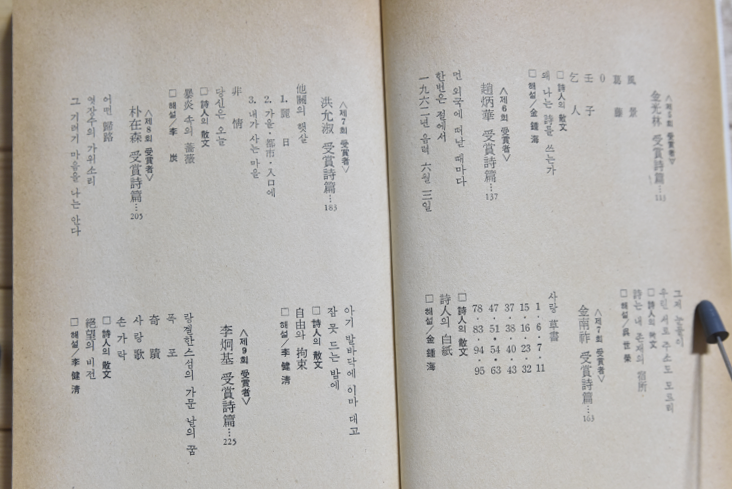 〈제5회 受賞者〉
金光林 受賞詩篇…113
風 景
葛 藤
0
壬 子
乞 人
□ 詩人의 散文
왜 나는 詩를 쓰는가
□ 해설／金鍾海
〈제6회 受賞者〉
趙炳華 受賞詩篇…137
먼 외국에 떠날 때마다
한번은 절에서
一九六二년 음력 六월 三일
그저 눈물이
우린 서로 주소도
□ 詩人의 散文
詩는 내 존재의 宿所
□ 해설／吳世榮
〈제7회 受賞者〉
金南祚 受賞詩篇…163
사랑 草書
1 · 6 · 7 · 11
15 · 16 · 23 · 32
37 · 38 · 40 · 43
47 · 51 · 54 · 63
78 · 83 · 94 · 95
□ 詩人의 散文
詩人의 白紙
□ 해설／金鍾海
〈제7회 受賞者〉
洪允淑 受賞詩篇…183
他關의 햇살
1. 麗 日
2. 가을·都市·人口에
3. 내가 사는 마을
非 情
당신은 오늘
□ 詩人의 散文
暴炎 속의 薔薇
□ 해설／李 炭
〈제8회 受賞者〉
朴在森 受賞詩篇…205
어떤 歸路
엿장수의 가위소리
그 기러기 마음을 나는 안다
아기 발바닥에 이마 대고
잠 못 드는 밤에
□ 詩人의 散文
自由와 拘束
□ 해설／李健淸
〈제9회 受賞者〉
李炯基 受賞詩篇…225
랑겔한스섬의 가문 날의 꿈
폭 포
奇 蹟
사랑歌
손가락
□ 詩人의 散文
絕望의 비전
□ 해설／李健淸